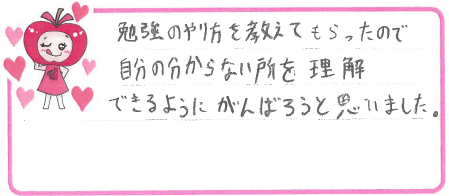 勉強のやり方を教えてもらったので
自分の分からない所を理解
できるようにがんばろうと思いました。